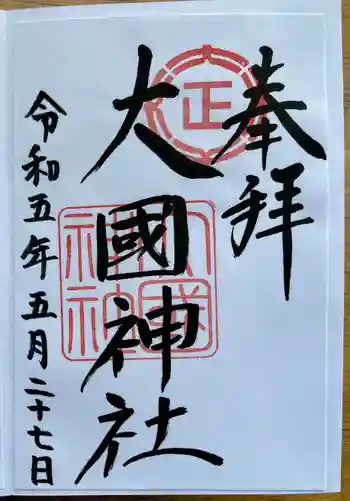 奉拝
正
大國神社
大國神社
令和五年五月二十七日